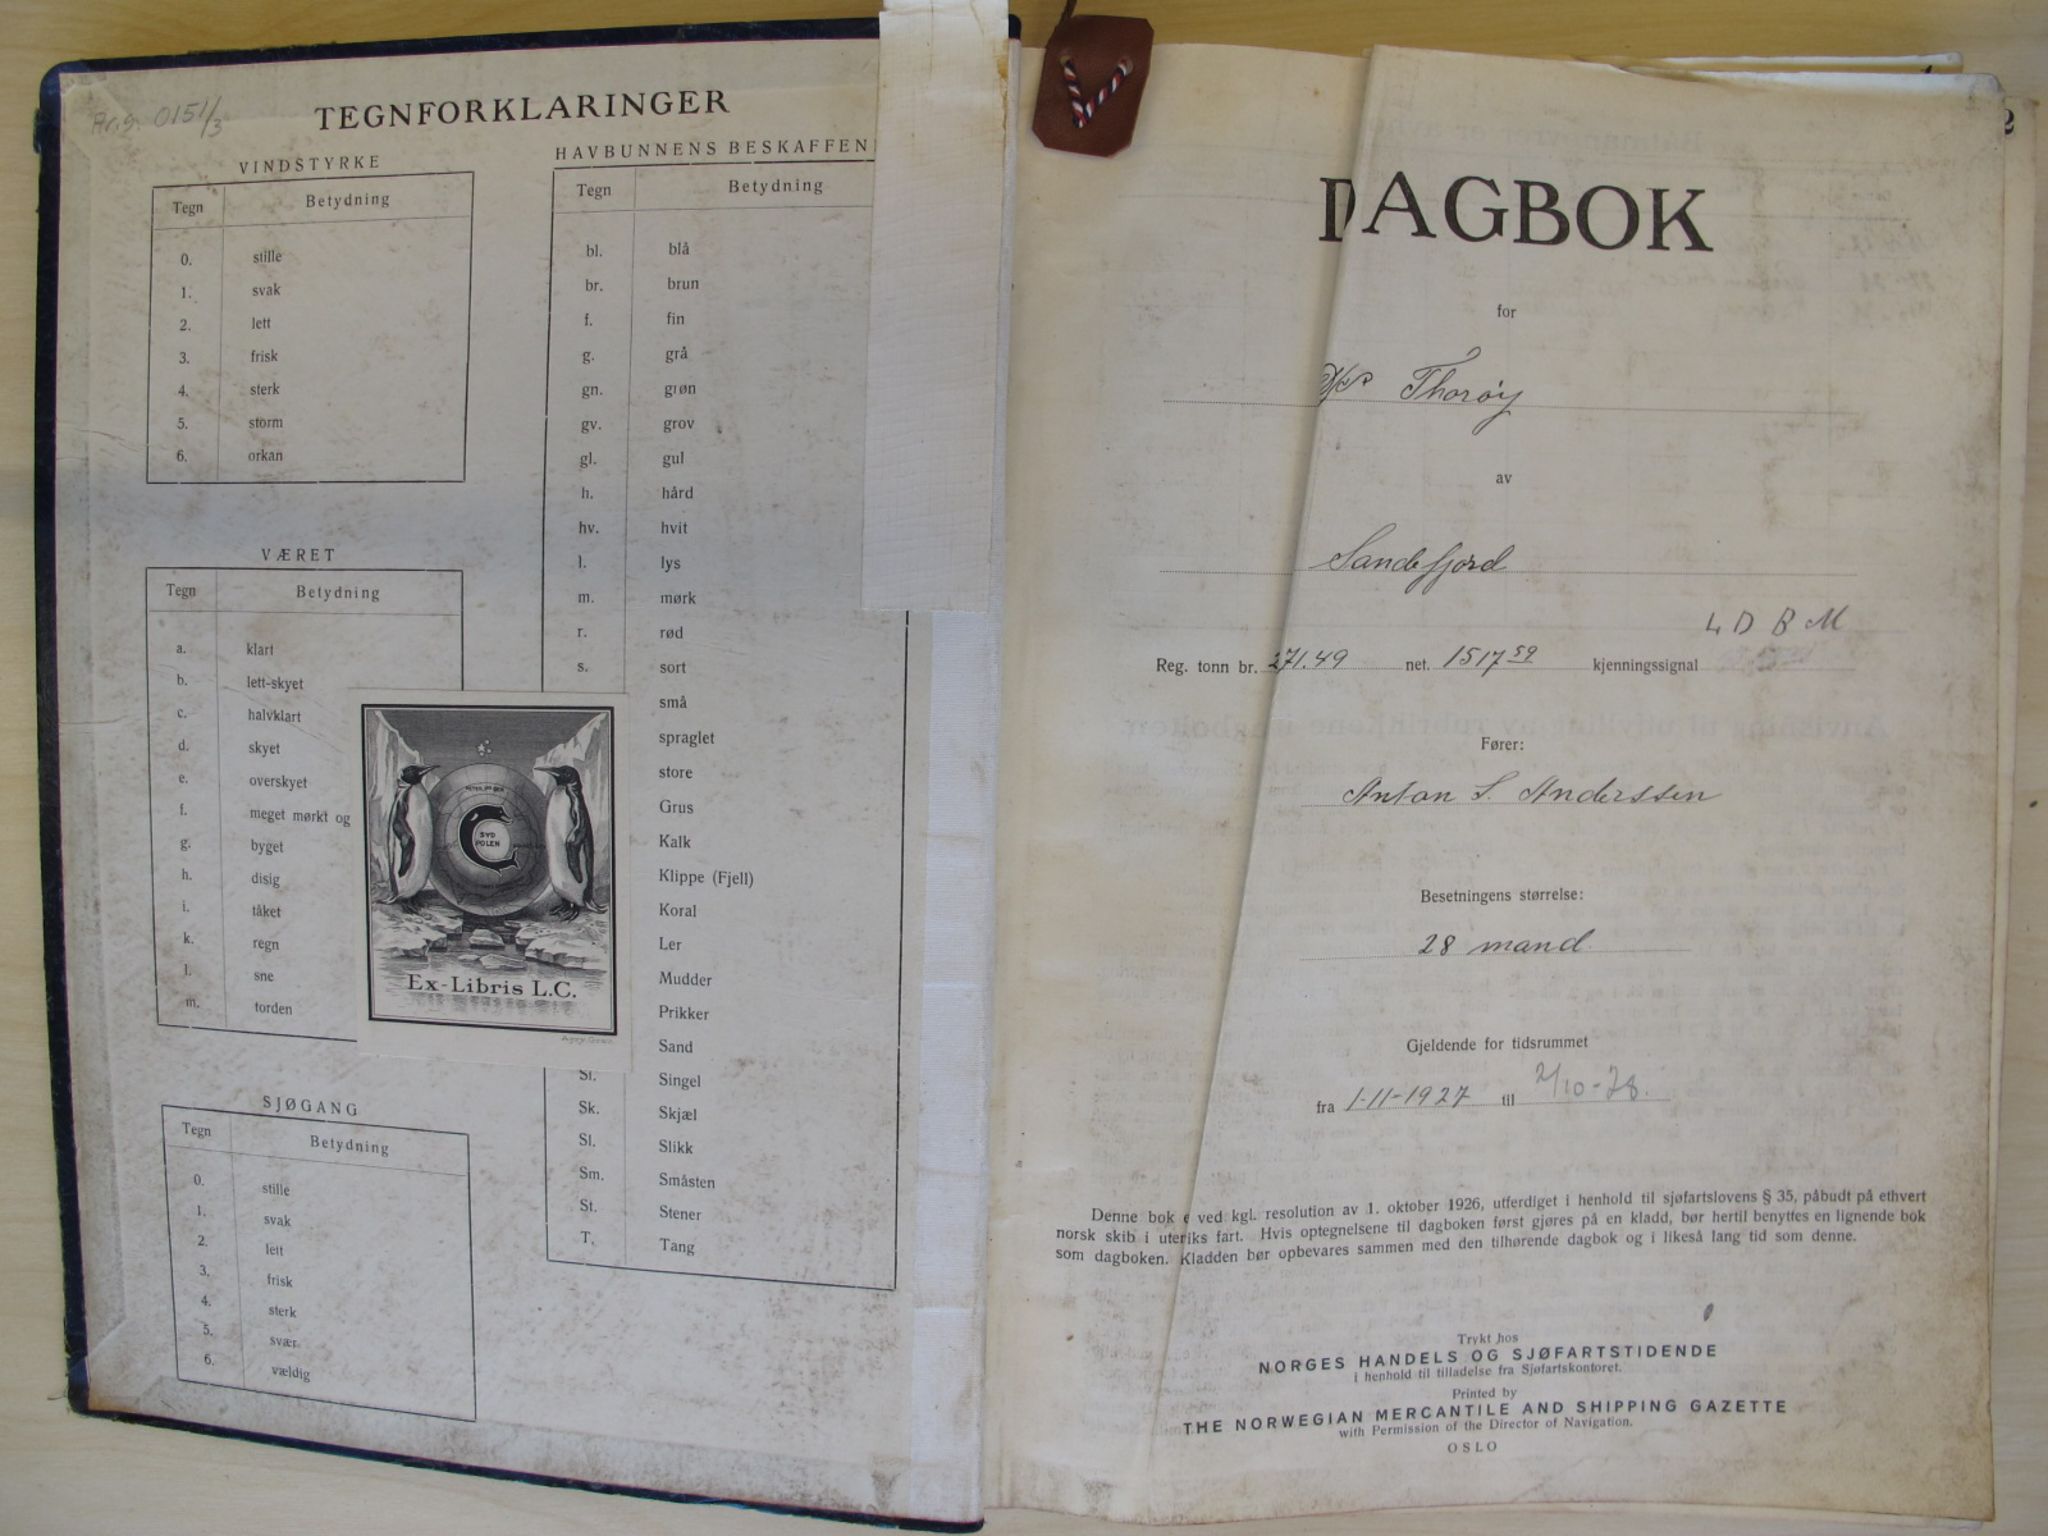 0151/3
TEGNFORKLARINGER
VINDSTYRKE
Tegn Betydning
0. stille
1. svak
2. lett
3. frisk
4. sterk
5. storm
6. orkan
VÆRET
Tegn Betydning
a. klart
b. lett-skyet
c. halvklart
d. skyet
e. overskyet
f. meget mørkt og
g. byget
h. disig
i. tåket
k. regn
l. sne
m. torden
SJØGANG
Tegn Betydning
0. stille
1. svak
2. lett
3. frisk
4. sterk
5. svær
6. vældig
HAVBUNNENS BESKAFFEN
Tegn Betydning
bl. blå
br. brun
f. fin
g. grå
gn. grøn
gv. grov
gl. gul
h. hård
hv. hvit
l. lys
m. mørk
r. rød
s. sort
små
spraglet
store
Grus
Kalk
Klippe (Fjell)
Koral
Ler
Mudder
Prikker
Sand
Si. Singel
Sk. Skjæl
Sl. Slikk
Sm. Småsten
St. Stener
T. Tang
SYD
POLEN
Ex-Libris L.C.
2
DAGBOK
for
Thorøy
av
Sandefjord
L D B M
Reg. tonn br. 271.49 net. 1517 59 kjenningssignal
Fører:
Anton S. Anderssen
Besetningens størrelse:
28 mand
Gjeldende for tidsrummet
fra 1-11-1927 til 2/10-28.
Denne bok e ved kgl. resolution av 1. oktober 1926, utferdiget i henhold til sjøfartslovens § 35, påbudt på ethvert
norsk skib i uteriks fart. Hvis optegnelsene til dagboken først gjøres på en kladd, bør hertil benyttes en lignende bok
som dagboken. Kladden bør opbevares sammen med den tilhørende dagbok og i likeså lang tid som denne.
Trykt hos
NORGES HANDELS OG SJØFARTSTIDENDE
i henhold til tilladelse fra Sjøfartskontoret.
Printed by
THE NORWEGIAN MERCANTILE AND SHIPPING GAZETTE
with Permission of the Director of Navigation.
OSLO